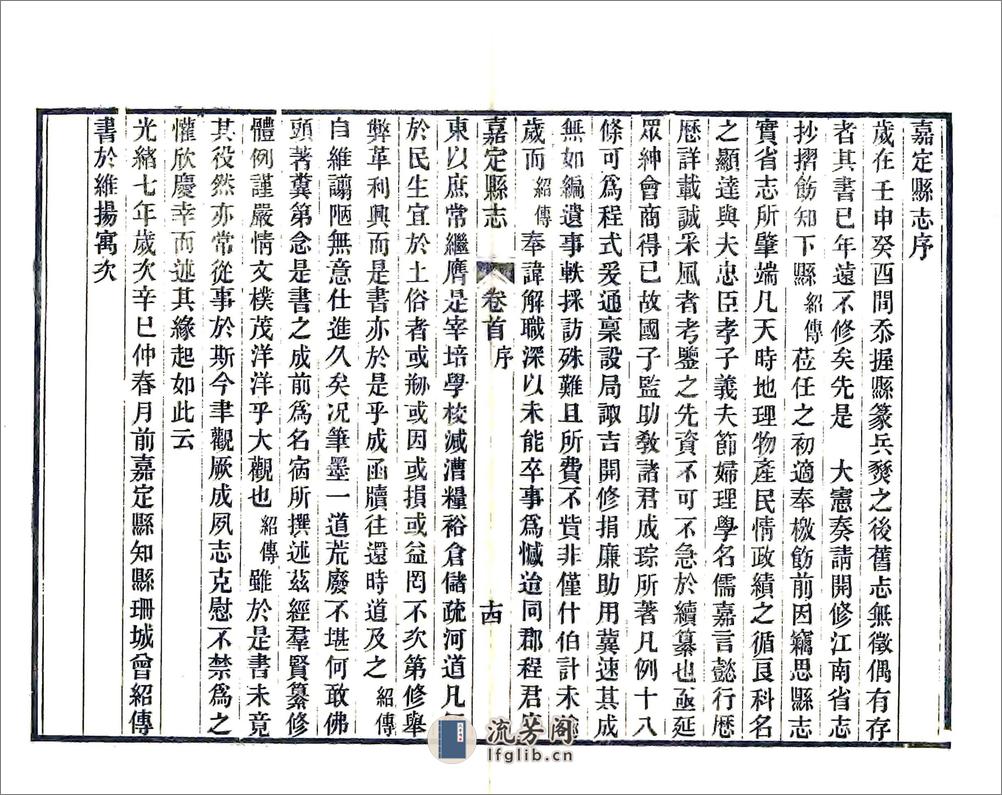 嘉定縣志序
歲在壬申癸酉間忝握縣篆兵燹之後舊志無徵偶有存
者其書已年遠不修矣先是 大憲奏請開修江南省志
抄摺飭知下縣紹傳蒞任之初適奉檄飭前因竊思縣志
實省志所肇端凡天時地理物產民情政績之循良科名
之顯達與夫忠臣孝子義夫節婦理學名儒嘉言懿行歷
歷詳載誠采風者考鑒之先資不可不急於續纂也亟延
眾紳會商得已故國子監助教諸君成琮所著凡例十八
條可為程式爰通稟設局諏吉開修捐廉助用冀速其成
無如編遺事軼採訪殊難且所費不貲非僅什伯計未
歲而紹傳奉諱解職深以未能卒事為憾迨同郡程君
嘉定縣志 卷首 序 古
東以庶常繼膺是宰培學校減漕糧裕倉儲疏河道凡
於民生宜於土俗者或剏或因或損或益罔不次第修舉
弊革利興而是書亦於是乎成函牘往還時道及之紹傳
自維譾陋無意仕進久矣况筆墨一道荒廢不堪何敢佛
頭著糞第念是書之成前為名宿所撰述茲經羣賢纂修
體例謹嚴情文樸茂洋洋乎大觀也紹傳雖於是書未竟
其役然亦常從事於斯今聿觀厥成夙志克慰不禁為之
懽欣慶幸而述其緣起如此云
光緒七年歲次辛巳仲春月前嘉定縣知縣珊城曾紹傳
書於維揚寓次
流芳阁
lfglib.cn